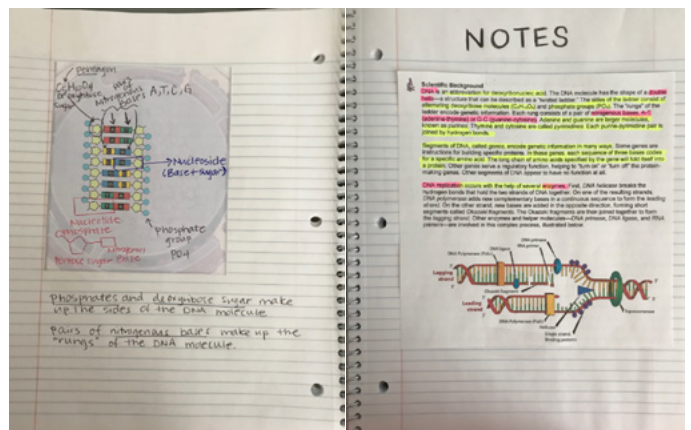 pentagon
C5H10O4
deoxyribose
sugar
pairs
Nitrogenous
Bases
A,T,C,G
Nucleoside
(Base + sugar)
Nucleotide
phosphate
Nitrogenous
Pentose sugar Base
phosphate
group
PO4
phosphates and deoxyribose sugar make
up the sides of the DNA molecule
pairs of nitrogenous bases make up the
"rungs" of the DNA molecule.
NOTES
Scientific Background
DNA is an abbreviation for deoxyribonucleic acid. The DNA molecule has the shape of a double
helix—a structure that can be described as a "twisted ladder." The sides of the ladder consist of
alternating deoxyribose molecules (C5H10O4) and phosphate groups (PO4). The "rungs" of the
ladder encode genetic information. Each rung consists of a pair of nitrogenous bases, A-T
(adenine-thymine) or G-C (guanine-cytosine). Adenine and guanine are larger molecules,
known as purines. Thymine and cytosine are called pyrimidines. Each purine-pyrimidine pair is
joined by hydrogen bonds.
Segments of DNA, called genes, encode genetic information in many ways. Some genes are
instructions for building specific proteins. In these genes, each sequence of three bases codes
for a specific amino acid. The long chain of amino acids specified by the gene will fold itself into
a protein. Other genes serve a regulatory function, helping to "turn on" or "turn off" the protein-
making genes. Other segments of DNA appear to have no function at all.
DNA replication occurs with the help of several enzymes. First, DNA helicase breaks the
hydrogen bonds that hold the two strands of DNA together. On one of the resulting strands,
DNA polymerase adds new complementary bases in a continuous sequence to form the leading
strand. On the other strand, new bases are added in the opposite direction, forming short
segments called Okazaki fragments. The Okazaki fragments are then joined together to form
the lagging strand. Other enzymes and helper molecules—DNA primase, DNA ligase, and RNA
primers—are involved in this complex process, illustrated below.
DNA primase
RNA primer
DNA ligase
DNA Polymerase (Polα)
Lagging
strand
Okazaki fragment
Leading
strand
DNA Polymerase (Polδ)
Helicase
Single strand,
Binding proteins
Topoisomerase